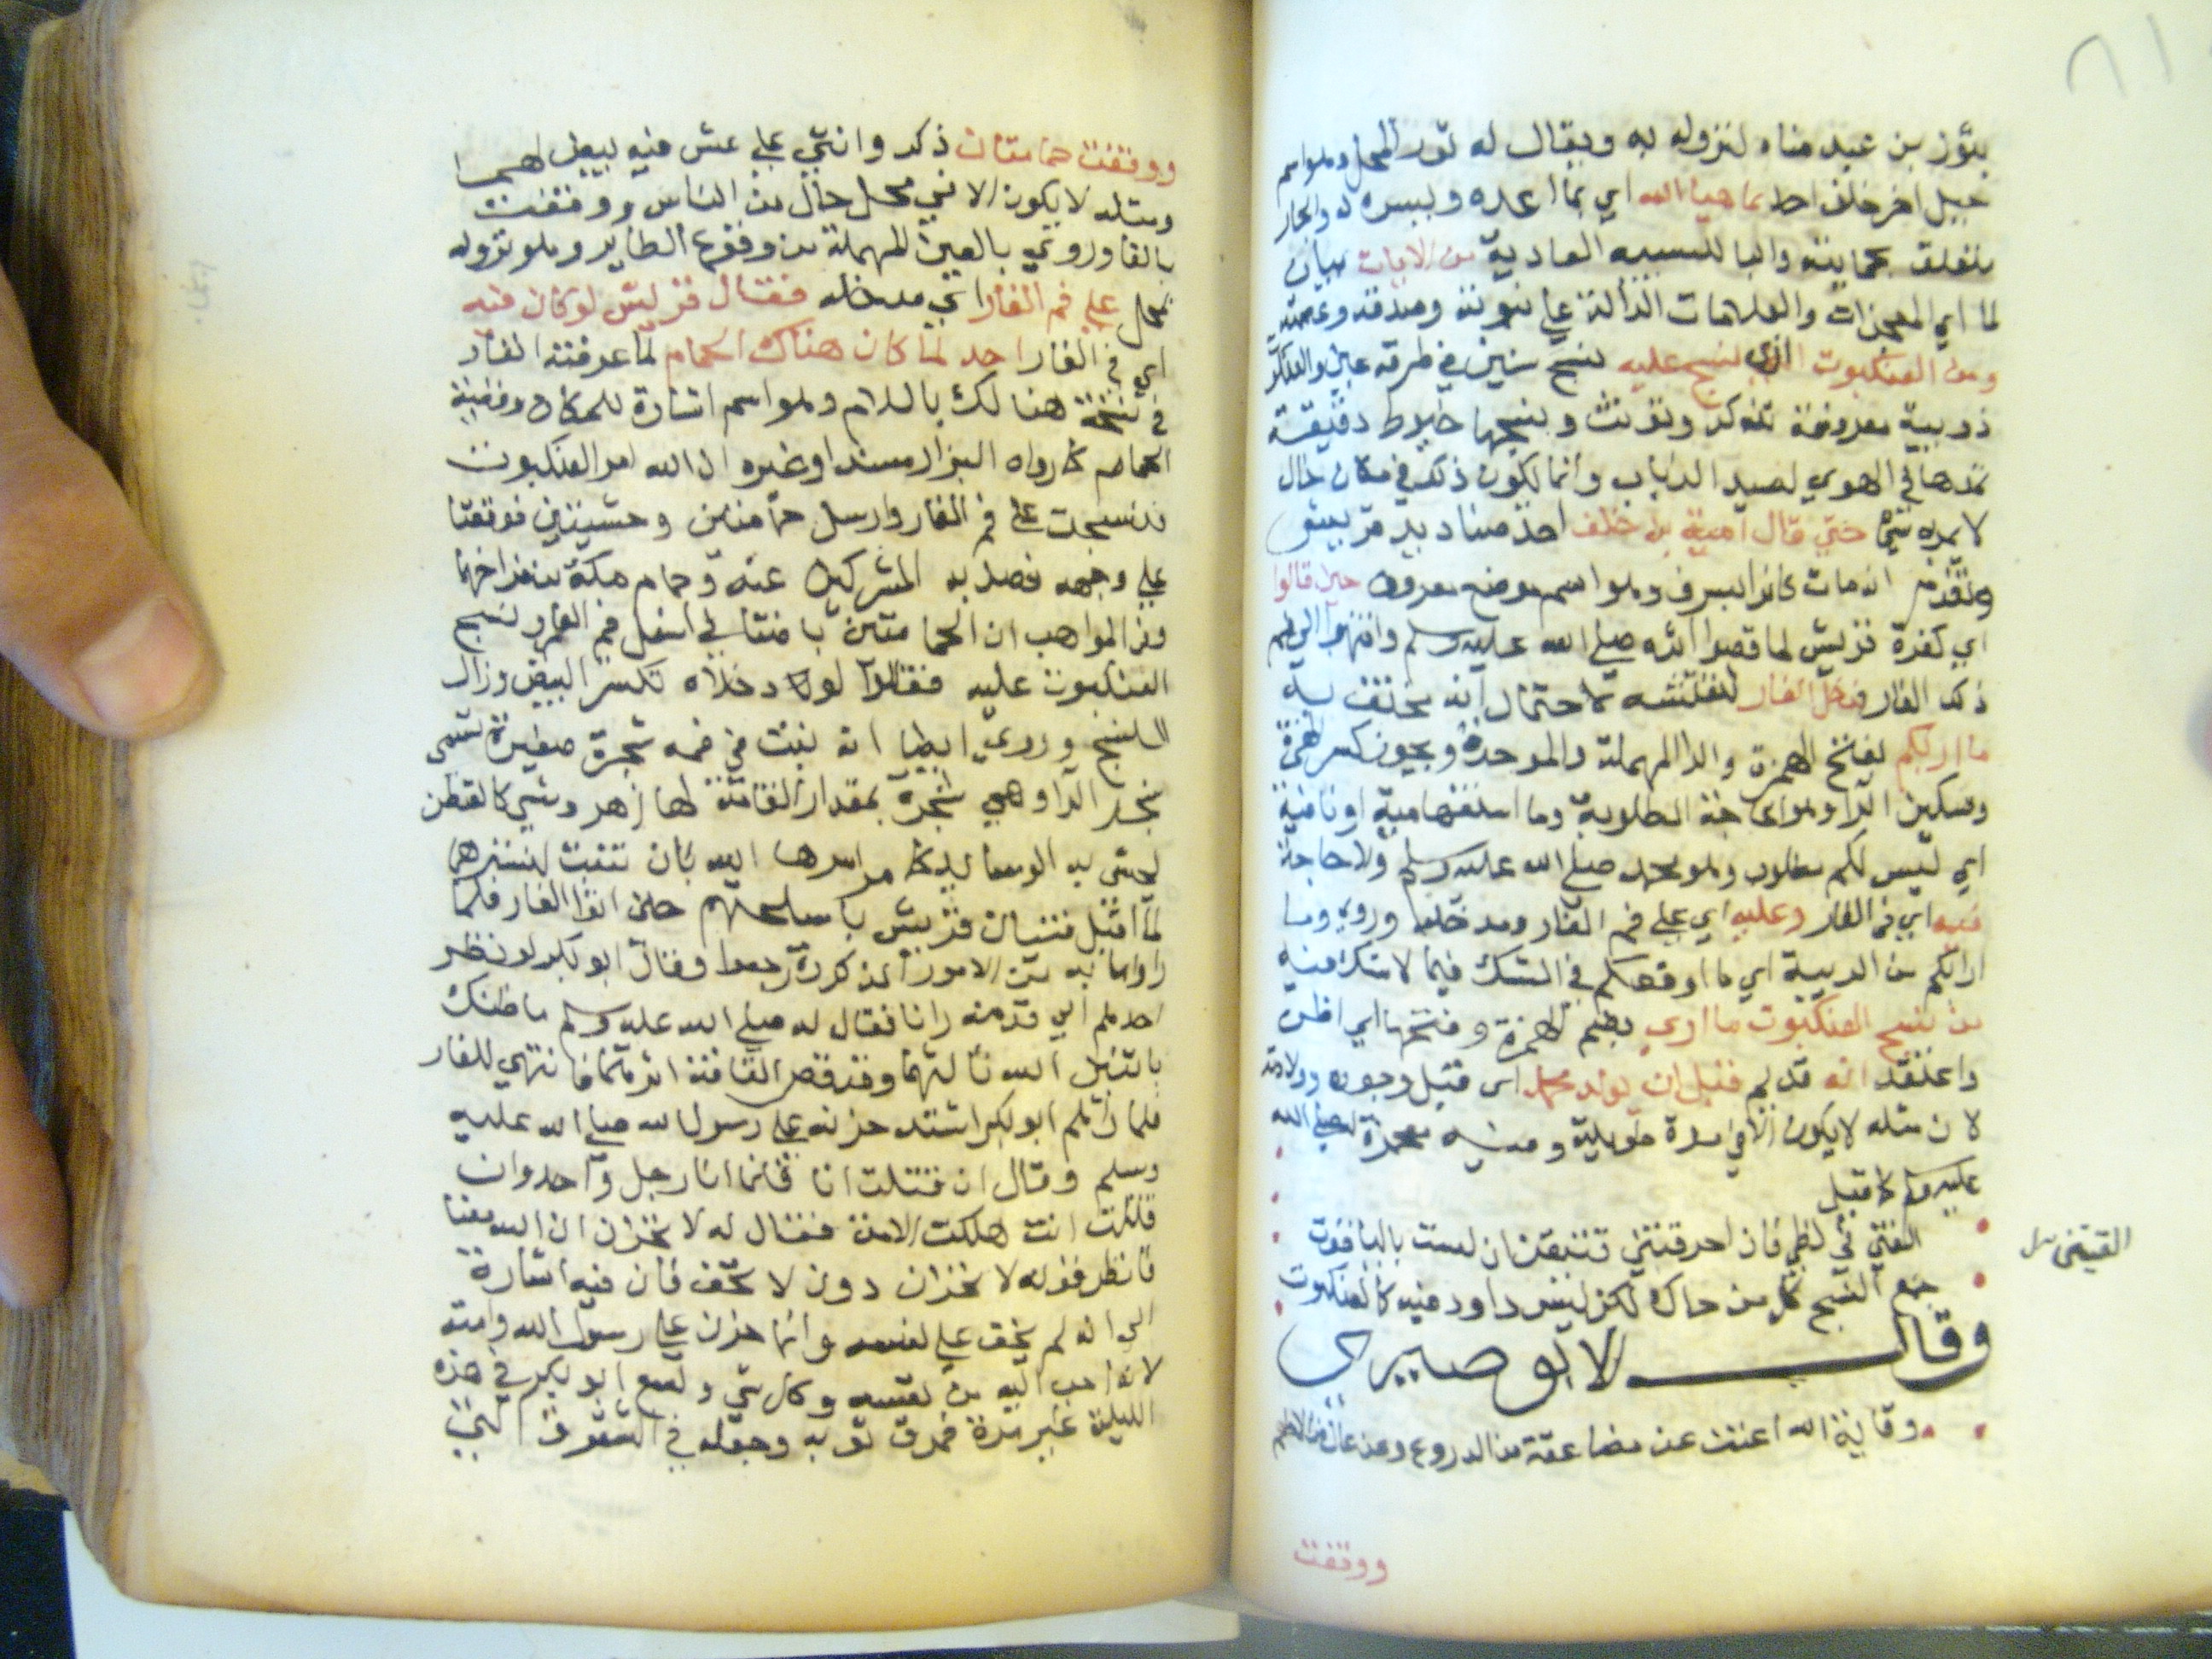 بثور بن عبد مناه لنزوله به ويقال له ثور المحل وهو اسم
جبل اخر خلف احد بما هيا الله اي بما اعده ويسره له والجار
متعلق بحمايته والبا للسببيه العادية من الايات بيان
لما اي المعجزات والعلامات الدالة على نبوته وصدقه وعصمته
ومن العنكبوت الذي نسج عليه نسج سنين في طرفة عين والعنكبوت
دويبة معروفة تذكر وتونث ونسجها خيوط دقيقة
تمدها في الهوي لصيد الذباب وانما يكون ذلك في مكان خال
لا يمره شي حتي قال امية بن خلف احد صناديد قريش
وتقدم انه مات كافرا بسرف وهو اسم موضع معروف حين قالوا
اي كفرة قريش لما قصوا اثره صلى الله عليه وسلم وانتهوا الي فم
ذكد الغار ندخل الغار لنفتشه لاحتمال انه مختف به
ما اربكم بفتح الهمزة والرا المهملة والموحدة ويجوز كسر الهمزة
وسكون الرا وهو الحاجة المطلوبة وما استفهامية او نافية
اي ليس لكم مطلوب وهو محمد صلى الله عليه وسلم ولا حاجة
فيه اي في الغار وعليه اي على فم الغار ومدخله وروي وما
ارابكم من الريبة اي ما اوقعكم في الشك فيما لا شك فيه
من نسج العنكبوت ما اري بضم الهمزة وفتحها اي اظن
واعتقد انه قد تم قبل ان يولد محمد اي قبل وجوده وولادته
لان مثله لا يكون الا في مدة طويلة وفيه معجزة له صلى الله
عليه وسلم كما قيل
القني في لظي فان احرقتني فتيقن ان لست بالياقوت
جمع النسج كل من حاك لكن ليس داود فيه كالعنكبوت
القيتني
وقال الابوصيري
وقاية الله اغنت عن مضاعفة من الدروع وعن عال من الاطم
ووقفت
ووقفت حمامتان ذكد وانثي علي عش فيه بيض لهما
ومثله لا يكون الا في محل خال من الناس ووقفت
بالقاف وروي بالعين المهملة من وقوع الطاير وهو نزوله
بمحل علي فم الغار اي مدخله فقال قريش لو كان فيه
اي في الغار احد لما كان هناك الحمام لما عرفته الغار
في نسخة هنالك باللام وهو اسم اشارة للمكان وقضية
الحمام كما رواه البزار مسندا وغيره ان الله امر العنكبوت
فنسجت على فم الغار وارسل حمامتين وحشيتين فوقفتا
علي وجهه فصد به المشركين عنه وحمام مكة من فراخهما
وفي المواهب ان الحمامتين باضتا في اسفل فم الغار ونسج
العنكبوت عليه فقالوا لو دخلاه تكسر البيض وزال
النسج وروي ايضا انه نبت في فمه شجرة صغيرة تسمي
شجر الرا وهي شجرة بمقدار القامة لها زهر وشي كالقطن
يحشي به الوسايد كما مر امرها الله بان تنبت لتسترهما
لما اقبل فتيان قريش باسلحتهم حتى اتوا الغار فلما
راوا ما به من الامور المذكورة رجعوا وقال ابو بكر لو نظر
احدهم الي قدمه رانا فقال له صلى الله عليه وسلم ما ظنك
باثنين الله ثالثهما وقد قص القافة اثرهما فانتهي للغار
فلما راهم ابو بكر اشتد حزنه على رسول الله صلى الله عليه
وسلم وقال ان قتلت انا فانما انا رجل واحد وان
قتلت انت هلكت الامة فقال له لا تحزن ان الله معنا
فانظر قوله لا تحزن دون لا تخف فان فيه اشارة
الي انه لم يخف على نفسه وانما حزن على رسول الله وامته
لانه احب اليه من نفسه وكل شي ولسع ابو بكر في هذه
الليلة غير مرة فمزق ثوبه وجعله في الشقوق التي